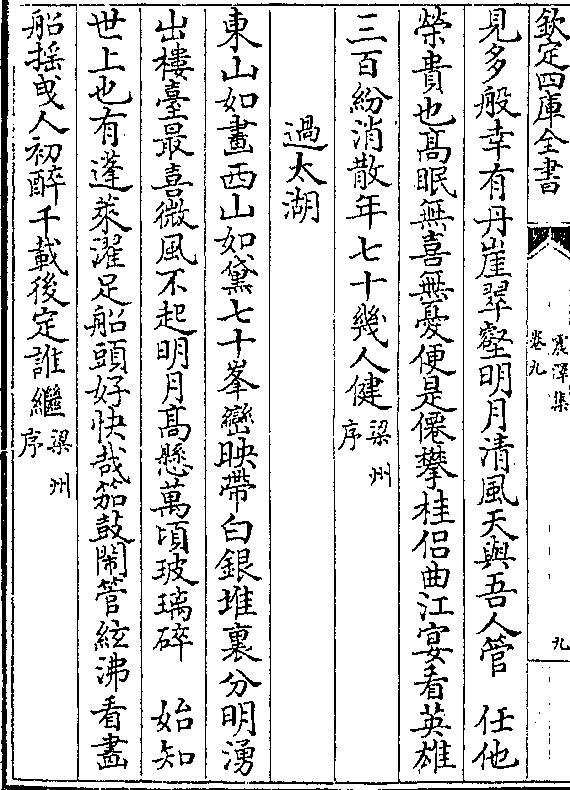 欽定四庫全書
震澤集
卷九
九
見多般幸有丹崖翠壑明月清風天與吾人管　任他
榮貴也髙眠無喜無憂便是僊攀桂侣曲江宴看英雄
三百紛消散年七十幾人健梁州序
過太湖
東山如畫西山如黛七十峯巒映帶白銀堆裏分明湧
出樓臺最喜微風不起明月髙懸萬頃玻璃碎　始知
世上也有蓬萊濯足船頭好快哉笳鼓鬧管絃沸看畫
船揺曵人初醉千載後定誰繼梁州序